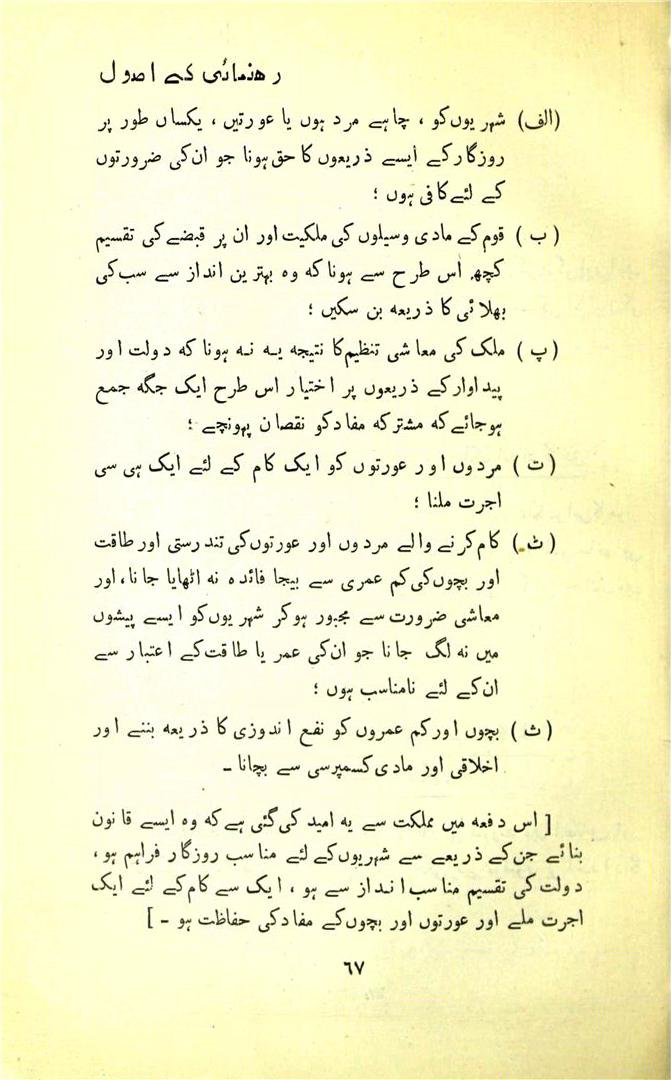 رهنمائی کے اصول
(الف) شہریوں کو ، چاہے مرد ہوں یا عورتیں ، یکساں طور پر
روزگار کے ایسے ذریعوں کا حق ہونا جو ان کی ضرورتوں
کے لئے کافی ہوں ؛
(ب) قوم کے مادی وسیلوں کی ملکیت اور ان پر قبضے کی تقسیم
کچھ اس طرح سے ہونا کہ وہ بہترین انداز سے سب کی
بھلائی کا ذریعہ بن سکیں ؛
(پ) ملک کی معاشی تنظیم کا نتیجہ یہ نہ ہونا کہ دولت اور
پیداوار کے ذریعوں پر اختیار اس طرح ایک جگہ جمع
ہو جائے کہ مشترکہ مفاد کو نقصان پہونچے ؛
(ت) مردوں اور عورتوں کو ایک کام کے لئے ایک ہی سی
اجرت ملنا ؛
(ٹ) کام کرنے والے مردوں اور عورتوں کی تندرستی اور طاقت
اور بچوں کی کم عمری سے بیجا فائدہ نہ اٹھایا جانا، اور
معاشی ضرورت سے مجبور ہو کر شہریوں کو ایسے پیشوں
میں نہ لگ جانا جو ان کی عمر یا طاقت کے اعتبار سے
ان کے لئے نامناسب ہوں ؛
(ث) بچوں اور کم عمروں کو نفع اندوزی کا ذریعہ بننے اور
اخلاقی اور مادی کسمپرسی سے بچانا ۔
[ اس دفعہ میں مملکت سے یہ امید کی گئی ہے کہ وہ ایسے قانون
بنائے جن کے ذریعے سے شہریوں کے لئے مناسب روزگار فراہم ہو ،
دولت کی تقسیم مناسب انداز سے ہو ، ایک سے کام کے لئے ایک
اجرت ملے اور عورتوں اور بچوں کے مفاد کی حفاظت ہو ۔ ]
٦٧